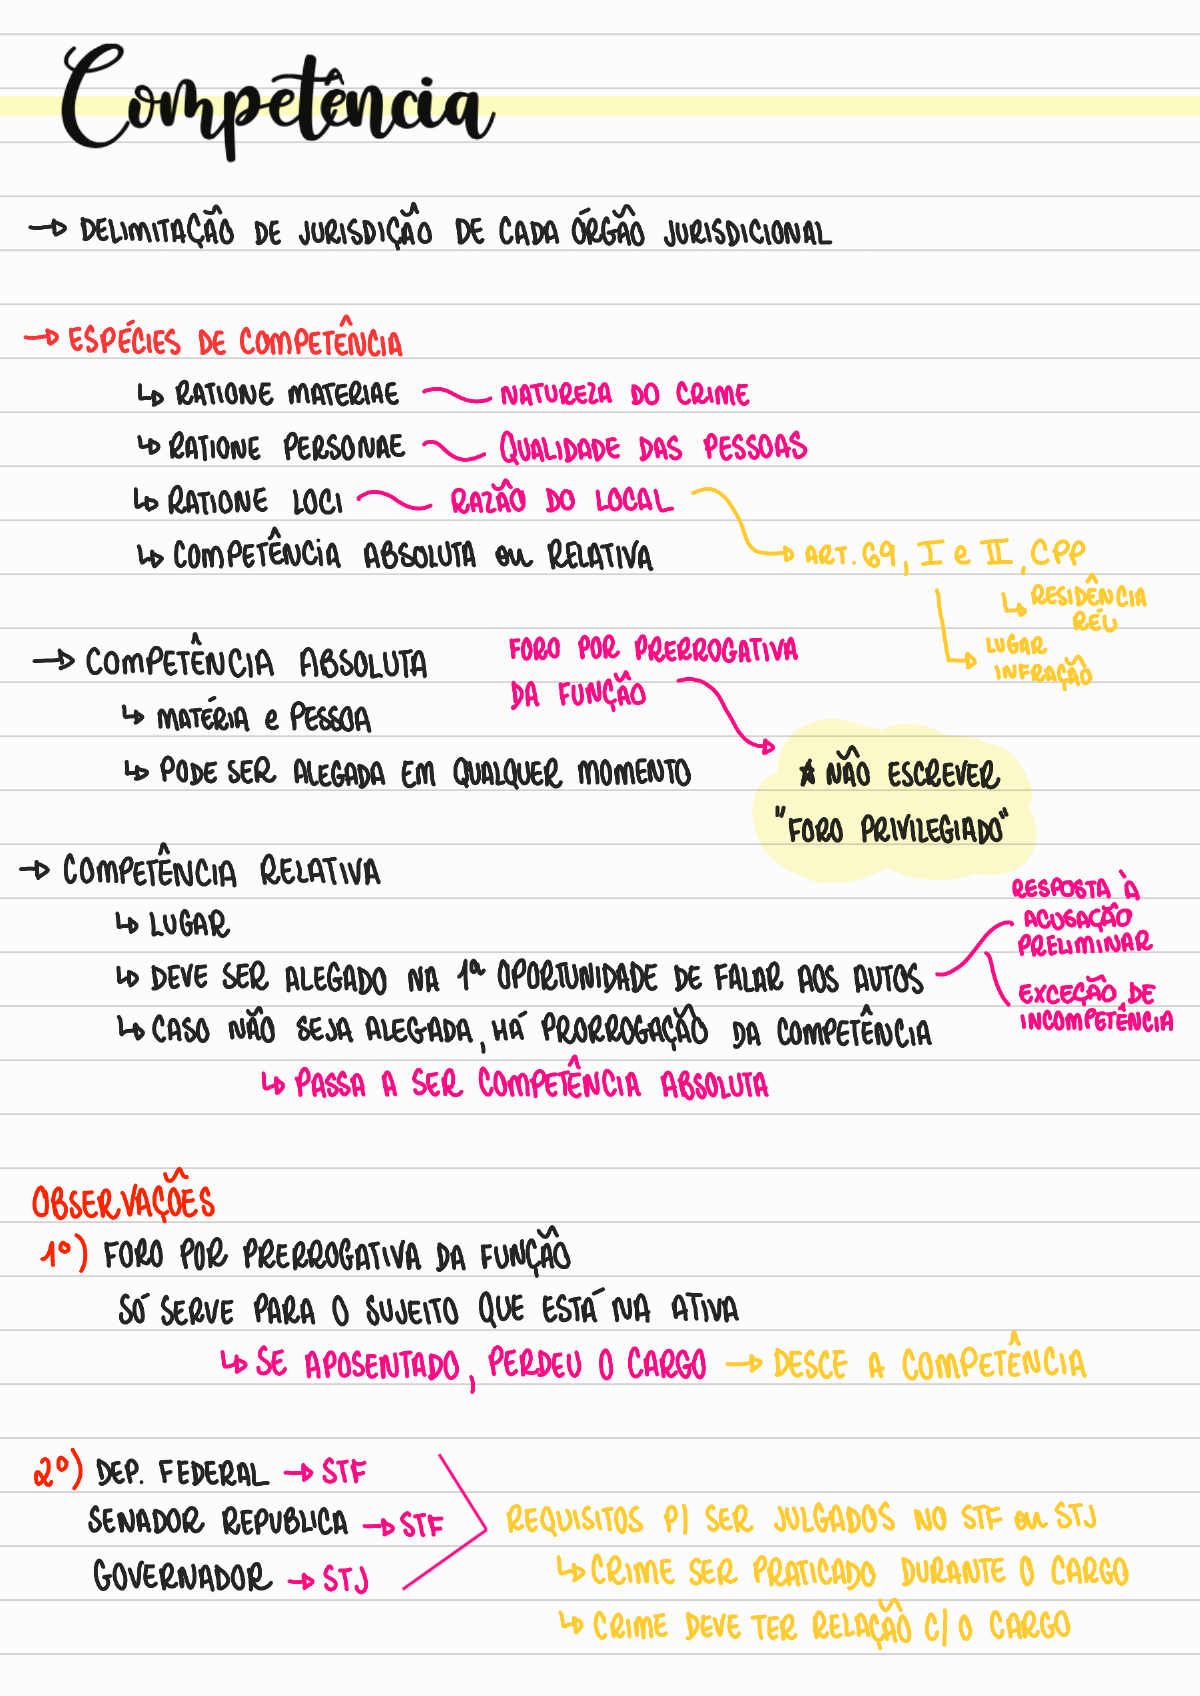 Competência
→ DELIMITAÇÃO DE JURISDIÇÃO DE CADA ÓRGÃO JURISDICIONAL
→ ESPÉCIES DE COMPETÊNCIA
↳ RATIONE MATERIAE NATUREZA DO CRIME
↳ RATIONE PERSONAE QUALIDADE DAS PESSOAS
↳ RATIONE LOCI RAZÃO DO LOCAL
↳ COMPETÊNCIA ABSOLUTA ou RELATIVA
→ ART. 69, I e II, CPP
↳ RESIDÊNCIA
RÉU
LUGAR
INFRAÇÃO
→ COMPETÊNCIA ABSOLUTA
↳ MATÉRIA e PESSOA
↳ PODE SER ALEGADA EM QUALQUER MOMENTO
FORO POR PRERROGATIVA
DA FUNÇÃO
* NÃO ESCREVER
"FORO PRIVILEGIADO"
→ COMPETÊNCIA RELATIVA
↳ LUGAR
↳ DEVE SER ALEGADO NA 1ª OPORTUNIDADE DE FALAR AOS AUTOS
RESPOSTA À
ACUSAÇÃO
PRELIMINAR
EXCEÇÃO DE
INCOMPETÊNCIA
↳ CASO NÃO SEJA ALEGADA, HÁ PRORROGAÇÃO DA COMPETÊNCIA
↳ PASSA A SER COMPETÊNCIA ABSOLUTA
OBSERVAÇÕES
1º) FORO POR PRERROGATIVA DA FUNÇÃO
SÓ SERVE PARA O SUJEITO QUE ESTÁ NA ATIVA
↳ SE APOSENTADO, PERDEU O CARGO → DESCE A COMPETÊNCIA
2º) DEP. FEDERAL → STF
SENADOR REPUBLICA → STF
GOVERNADOR → STJ
REQUISITOS P/ SER JULGADOS NO STF ou STJ
↳ CRIME SER PRATICADO DURANTE O CARGO
↳ CRIME DEVE TER RELAÇÃO C/ O CARGO